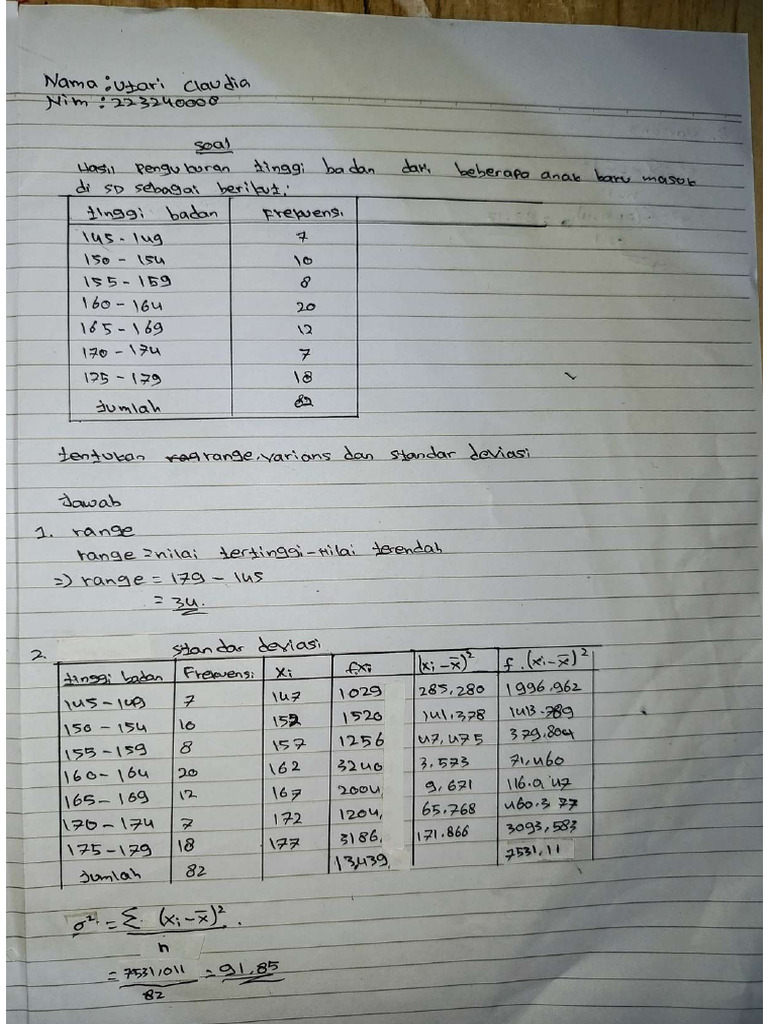 Nama : Utari Claudia
Nim : 223240008
soal
Hasil pengukuran tinggi badan dari beberapa anak baru masuk
di SD sebagai berikut :
tinggi badan Frekuensi
145 - 149 7
150 - 154 10
155 - 159 8
160 - 164 20
165 - 169 12
170 - 174 7
175 - 179 18
Jumlah 82
tentukan range, varians dan standar deviasi
Jawab
1. range
range = nilai tertinggi - nilai terendah
=> range = 179 - 145
= 34.
2. standar deviasi
tinggi badan Frekuensi xi fxi (xi - x̄)² f . (xi - x̄)²
145 - 149 7 147 1029 285,280 1996,962
150 - 154 10 152 1520 141,378 1413.789
155 - 159 8 157 1256 47,475 379,804
160 - 164 20 162 3240 3,573 71,460
165 - 169 12 167 2004, 9,671 116.047
170 - 174 7 172 1204, 65.768 460.377
175 - 179 18 177 3186. 171.866 3093,583
Jumlah 82 13,439, 7531,11
σ² = Σ (xi - x̄)² .
n
= 7531,011 = 91,85
82